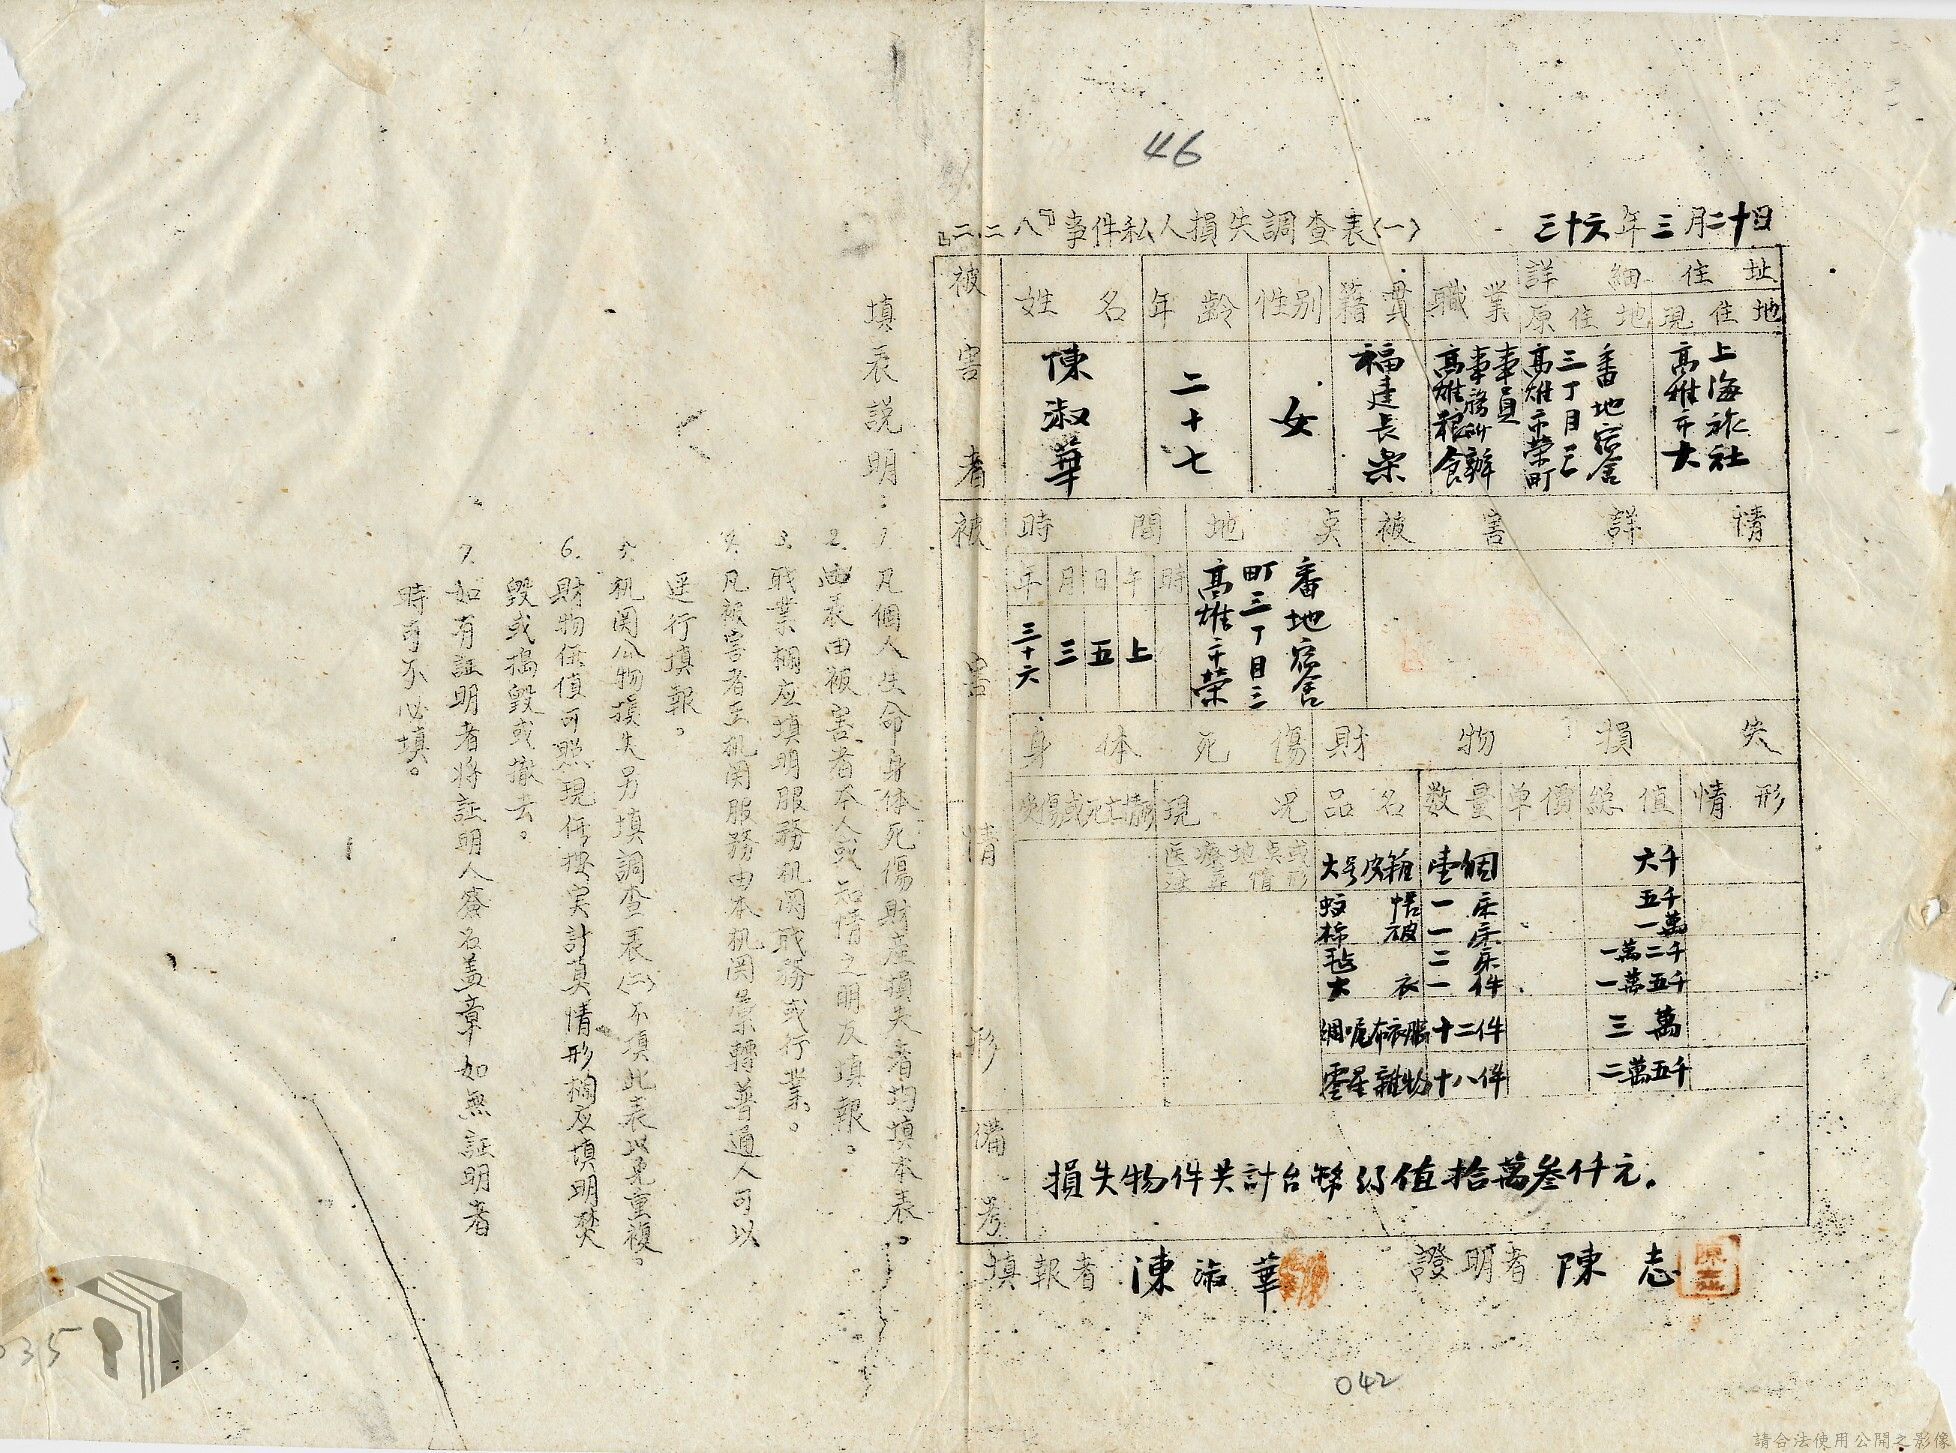 46
『二二八』事件私人損失調查表〈一〉
三十六年三月二十日
被害者
姓名 年齡 性別 籍貫 職業 詳細住址
原住地 現住地
陳淑華
二十七
女
福建長樂
高雄糧食
事務所辦
事員
高雄市榮町
三丁目三
番地宿舍
高雄市大
上海旅社
被害情形
時間 地點 被害詳情
年 月 日 午 時
三十六 三 五 上
高雄市榮
町三丁目三
番地宿舍
身体死傷 財物損失
受傷或死亡情形 現況 品名 数量 单價 總值 情形
大号皮箱 壹個 六千
蚊帳 一床 五千
棉被 一床 一萬
毡 二床 一萬二千
大衣 一件 一萬五千
綢呢布衣服 十二件 三萬
零星雜物 十八件 二萬五千
備考
損失物件共計台幣約值拾萬叁仟元。
填報者 陳淑華
證明者 陳志
陳志
填表説明：
1. 凡個人生命身体死傷財產損失者均填本表。
2. 此表由被害者本人或知情之朋友填報。
3. 职業欄应填明服務机関职務或行業。
4. 凡被害者在机関服務由本机関彙轉普通人可以
逕行填報。
5. 机関公物損失另填調查表〈二〉不填此表以免重複。
6. 財物価值可照現価按实計算情形欄应填明焚
毀或搗毀或搬去。
7. 如有証明者将証明人簽名盖章如無証明者
時可不必填。
035
042
請合法使用公開之影像